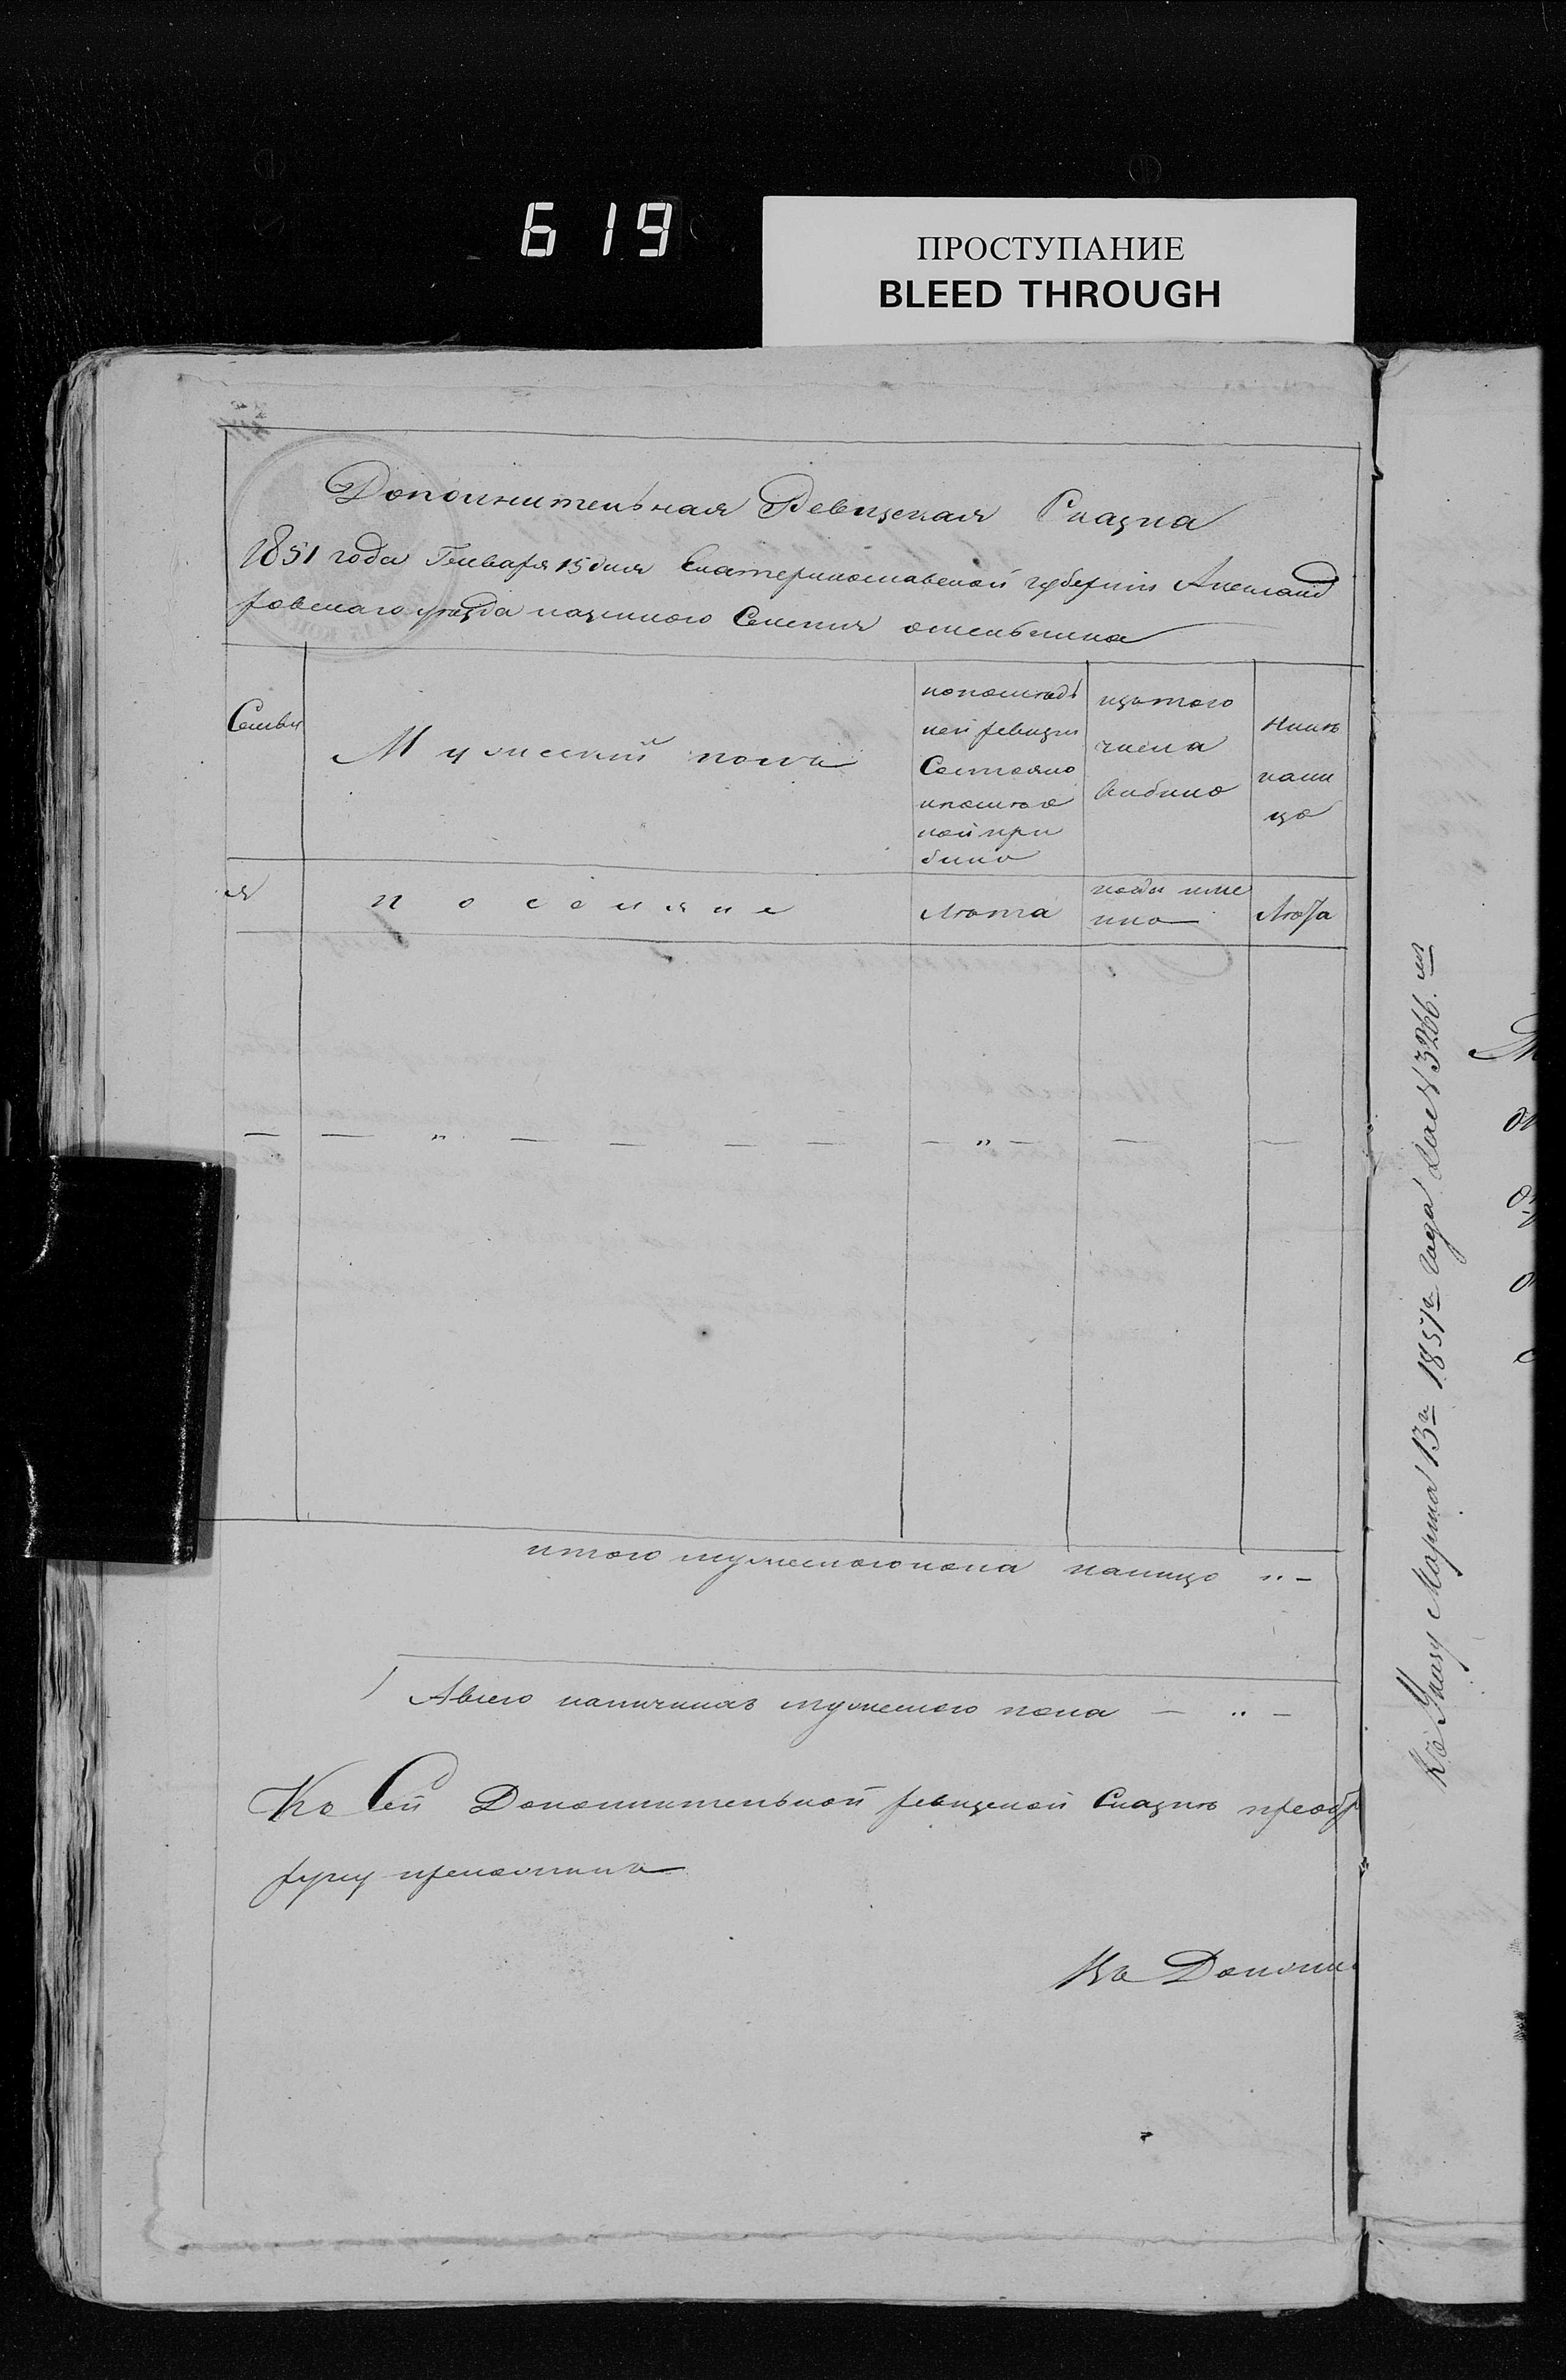 619
ПРОСТУПАНИЕ
BLEED THROUGH
Дополнительная Ревизская Сказка
1851 года Генваря 15 дня Екатеринославской губернии Александ
ровскаго уезда казенного Селения омельника
Семьи
Мужеский полъ
попослѣдъ
ней ревизіи
Состояло
ипослѣѣ
ной при
было
изътого
числа
выбыло
нынѣ
нали
цо
я
поселяне
лѣта
когда име
нно
лѣта
— — " — — — — — " — — —
итого мужескогопола налицо " —
Авсего наличныхъ мужескаго пола — " —
Къ Сей Дополнительной ревизской Сказкѣ
руку приложилъ
Къ Дополни
Марта 13го 1851го года N 3266.